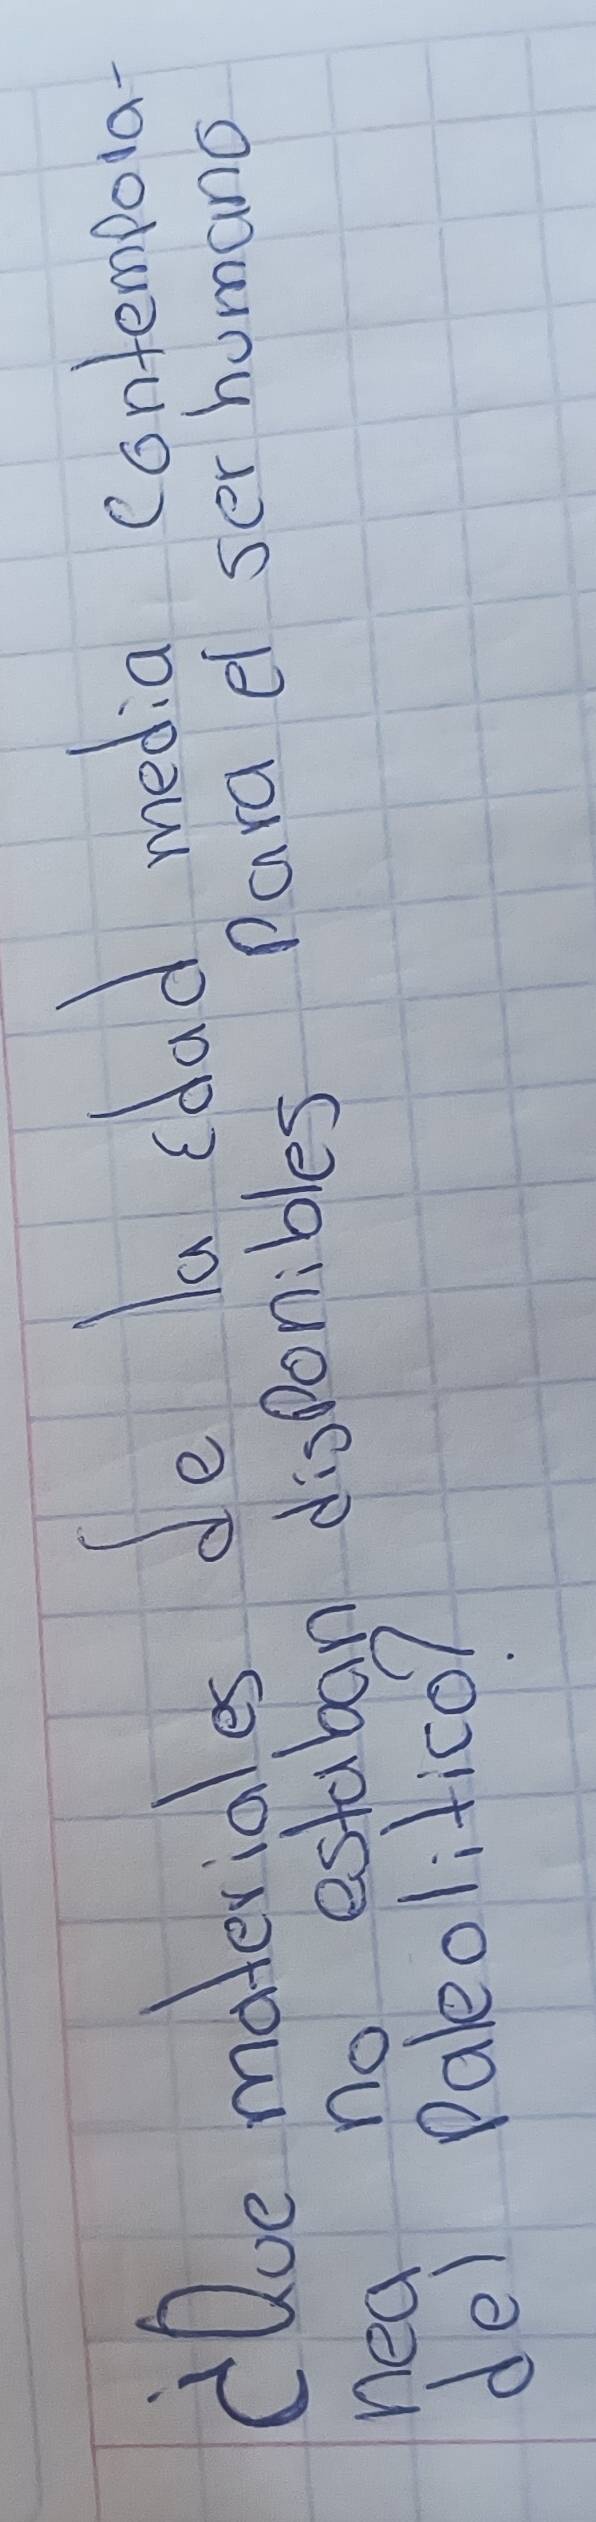 ¿Que materiales de la Edad media contempora-
nea no estaban disponibles para el ser humano
del paleolitico?